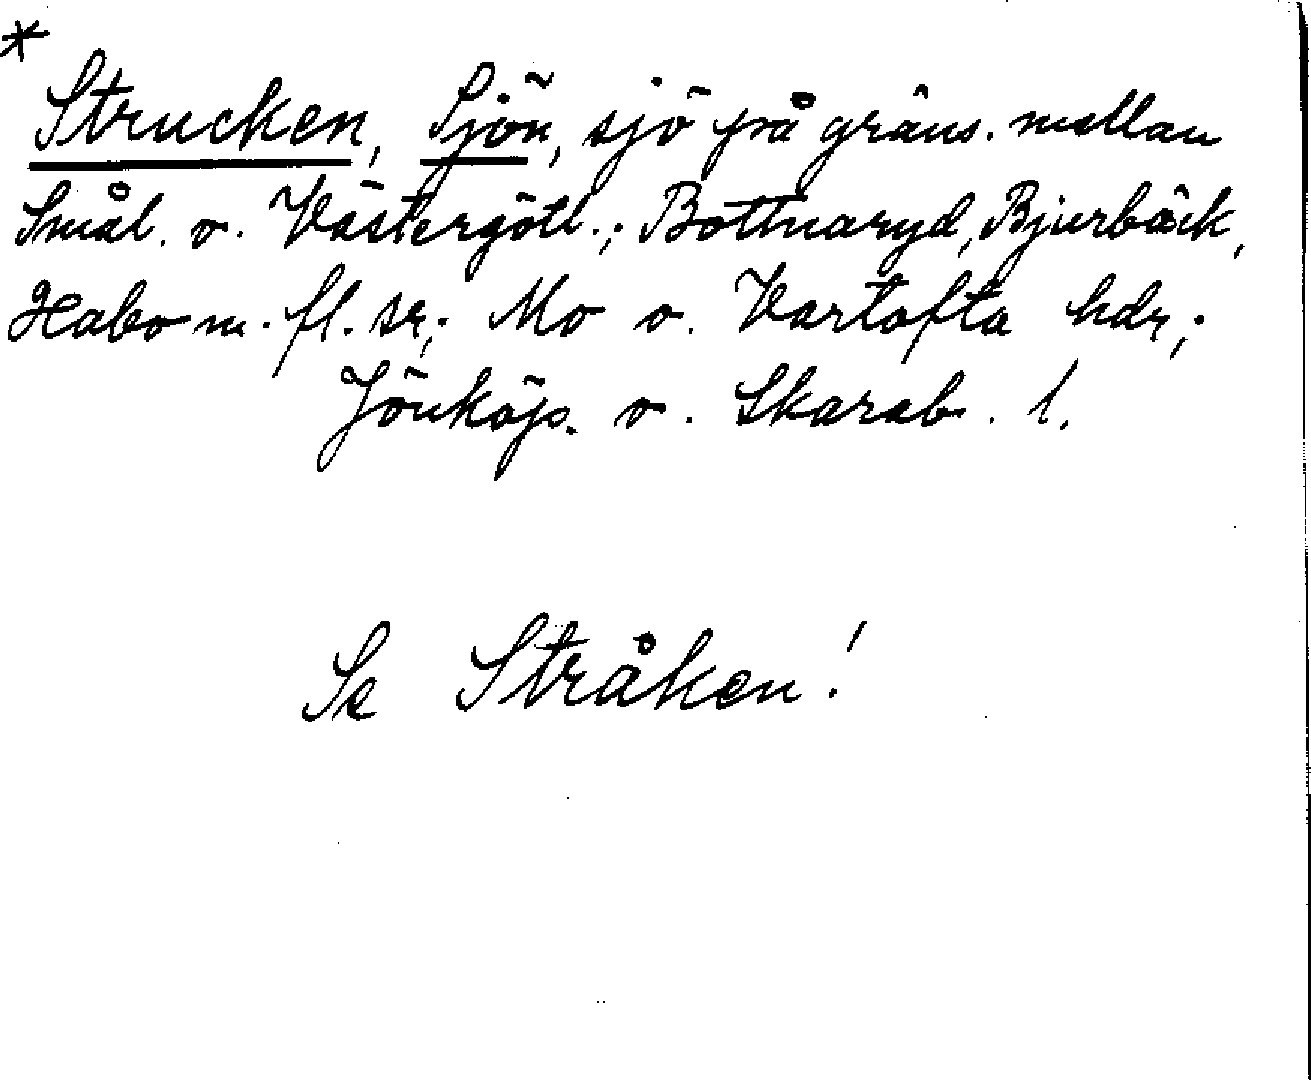 *
Strucken, Sjön, sjö på gräns. mellan
Smål. o. Västergötl.; Bottnaryd, Bjurbäck,
Habo m. fl. sr; Mo o. Vartofta hdr;
Jönköp. o. Skarab. l.
Se Stråken!